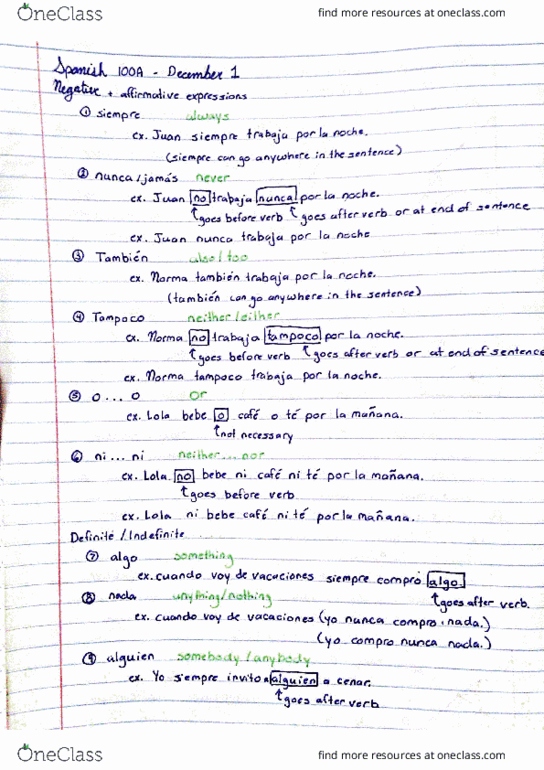 OneClass
find more resources at oneclass.com
Spanish 100A - December 1
Negative + affirmative expressions
① siempre always
ex. Juan siempre trabaja por la noche.
(siempre can go anywhere in the sentence)
② nunca/jamás never
ex. Juan no trabaja nunca por la noche.
↑goes before verb ↑ goes after verb or at end of sentence
ex. Juan nunca trabaja por la noche
③ También also/too
ex. Norma también trabaja por la noche.
(también can go anywhere in the sentence)
④ Tampoco neither/either
ex. Norma no trabaja tampoco por la noche.
↑goes before verb ↑goes after verb or at end of sentence
ex. Norma tampoco trabaja por la noche.
⑤ o...o or
ex. Lola bebe o café o té por la mañana.
↑not necessary
⑥ ni...ni neither...nor
ex. Lola no bebe ni café ni té por la mañana.
↑goes before verb
ex. Lola ni bebe café ni té por la mañana.
Definite/Indefinite
⑦ algo something
ex. cuando voy de vacaciones siempre compro algo.
↑goes after verb.
⑧ nada anything/nothing
ex. cuando voy de vacaciones (yo nunca compro nada.)
(yo compro nunca nada.)
⑨ alguien somebody/anybody
ex. Yo siempre invito a alguien a cenar.
↑goes after verb
OneClass
find more resources at oneclass.com